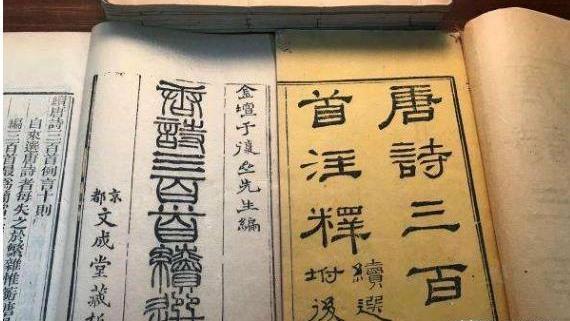 唐詩三百
首注釋
續選
坿後
金壇于復㞢先生編
唐詩三百首續選
京都
文成堂藏板
續唐詩三百首例言十則
自來選唐詩者每失之於繁雜惟蘅塘
編三百首最